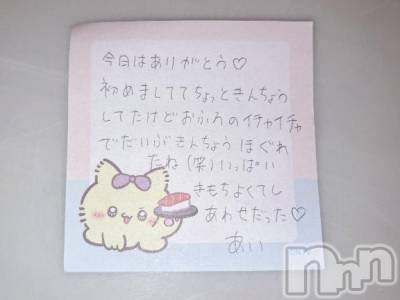 今日はありがとう♡
初めましててちょっときんちょう
してたけどおふろのイチャイチャ
でだいぶきんちょうほぐれ
たね(笑)いっぱい
きもちよくてし
あわせだった♡
あい
Nnn